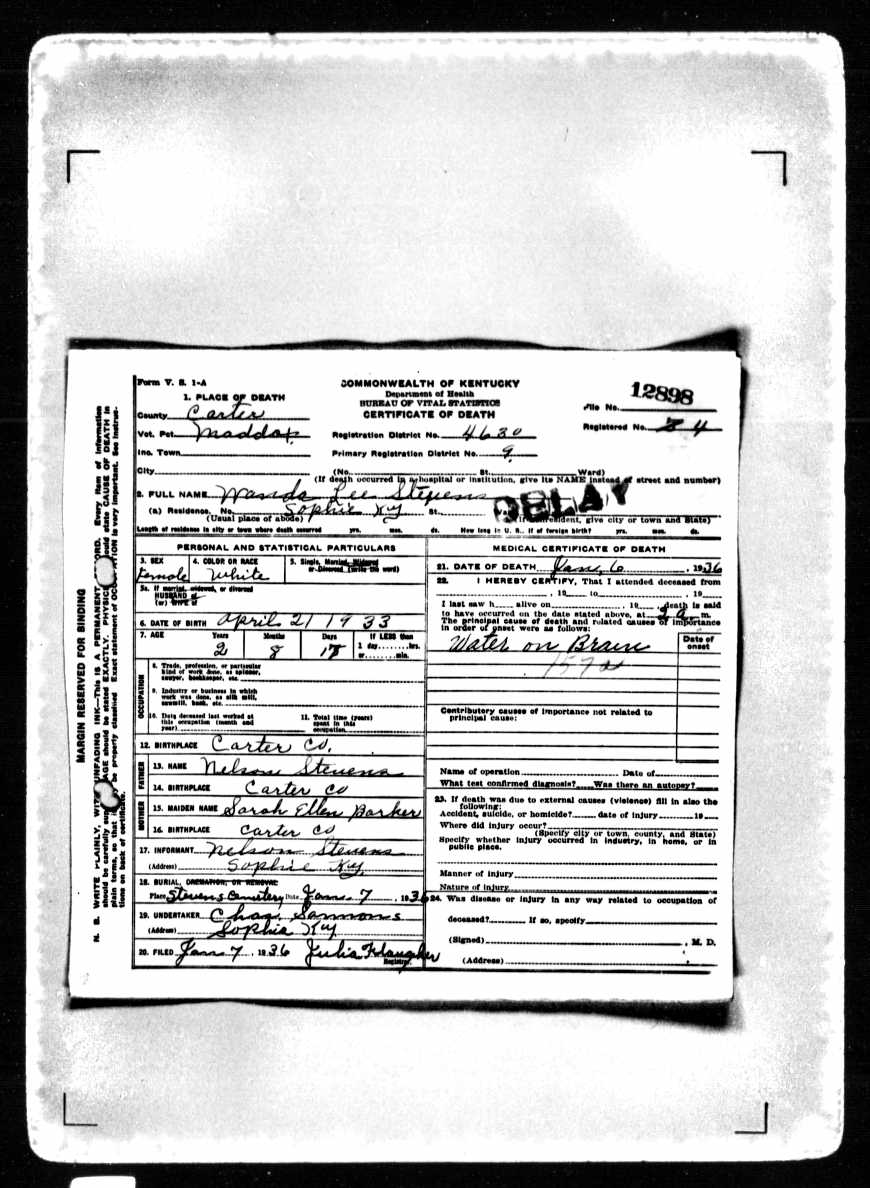 Form V. S. 1-A
COMMONWEALTH OF KENTUCKY
Department of Health
BUREAU OF VITAL STATISTICS
CERTIFICATE OF DEATH
File No. 12898
Registered No. 4
1. PLACE OF DEATH
County Carter
Vot. Pct. Maddox
Registration District No. 4630
Inc. Town
Primary Registration District No. 9
City (No. St. Ward)
(If death occurred in a hospital or institution, give its NAME instead of street and number)
2. FULL NAME Wanda Lee Stevens
DELAY
(a) Residence. No. Sophie Ky St.
(Usual place of abode) (If nonresident, give city or town and State)
Length of residence in city or town where death occurred yrs. mos. ds. How long in U. S., if of foreign birth? yrs. mos. ds.
PERSONAL AND STATISTICAL PARTICULARS
3. SEX Female
4. COLOR OR RACE White
5. Single, Married, Widowed or Divorced (write the word)
5a. If married, widowed, or divorced
HUSBAND of
(or) WIFE of
6. DATE OF BIRTH April 21 1933
7. AGE Years 2 Months 8 Days If LESS than 1 day hrs. or min.
OCCUPATION
8. Trade, profession, or particular kind of work done, as spinner, sawyer, bookkeeper, etc.
9. Industry or business in which work was done, as silk mill, sawmill, bank, etc.
10. Date deceased last worked at this occupation (month and year)
11. Total time (years) spent in this occupation
12. BIRTHPLACE Carter Co.
FATHER
13. NAME Nelson Stevens
14. BIRTHPLACE Carter Co
MOTHER
15. MAIDEN NAME Sarah Ellen Barker
16. BIRTHPLACE Carter Co
17. INFORMANT Nelson Stevens
(Address) Sophie Ky.
18. BURIAL, CREMATION, OR REMOVAL
Place Stevens Cemetery Date Jan 7, 1936
19. UNDERTAKER Chas. Sammons
(Address) Sophia Ky
20. FILED Jan 7, 1936 Julia Flaugher
Registrar.
MEDICAL CERTIFICATE OF DEATH
21. DATE OF DEATH Jan. 6, 1936
22. I HEREBY CERTIFY, That I attended deceased from
, 19 to , 19
I last saw h alive on , 19 , death is said
to have occurred on the date stated above, at 2 a. m.
The principal cause of death and related causes of importance
in order of onset were as follows:
Date of onset
Water on Brain
157a
Contributory causes of importance not related to
principal cause:
Name of operation Date of
What test confirmed diagnosis? Was there an autopsy?
23. If death was due to external causes (violence) fill in also the
following:
Accident, suicide, or homicide? date of injury 19
Where did injury occur?
(Specify city or town, county, and State)
Specify whether injury occurred in industry, in home, or in
public place.
Manner of injury
Nature of injury
24. Was disease or injury in any way related to occupation of
deceased? If so, specify
(Signed) , M. D.
(Address)
MARGIN RESERVED FOR BINDING
N. B. WRITE PLAINLY, WITH UNFADING INK—This is A PERMANENT RECORD. Every item of information
should be carefully supplied. AGE should be stated EXACTLY. PHYSICIANS should state CAUSE OF DEATH in
plain terms, so that it may be properly classified. Exact statement of OCCUPATION is very important. See instruc-
tions on back of certificate.